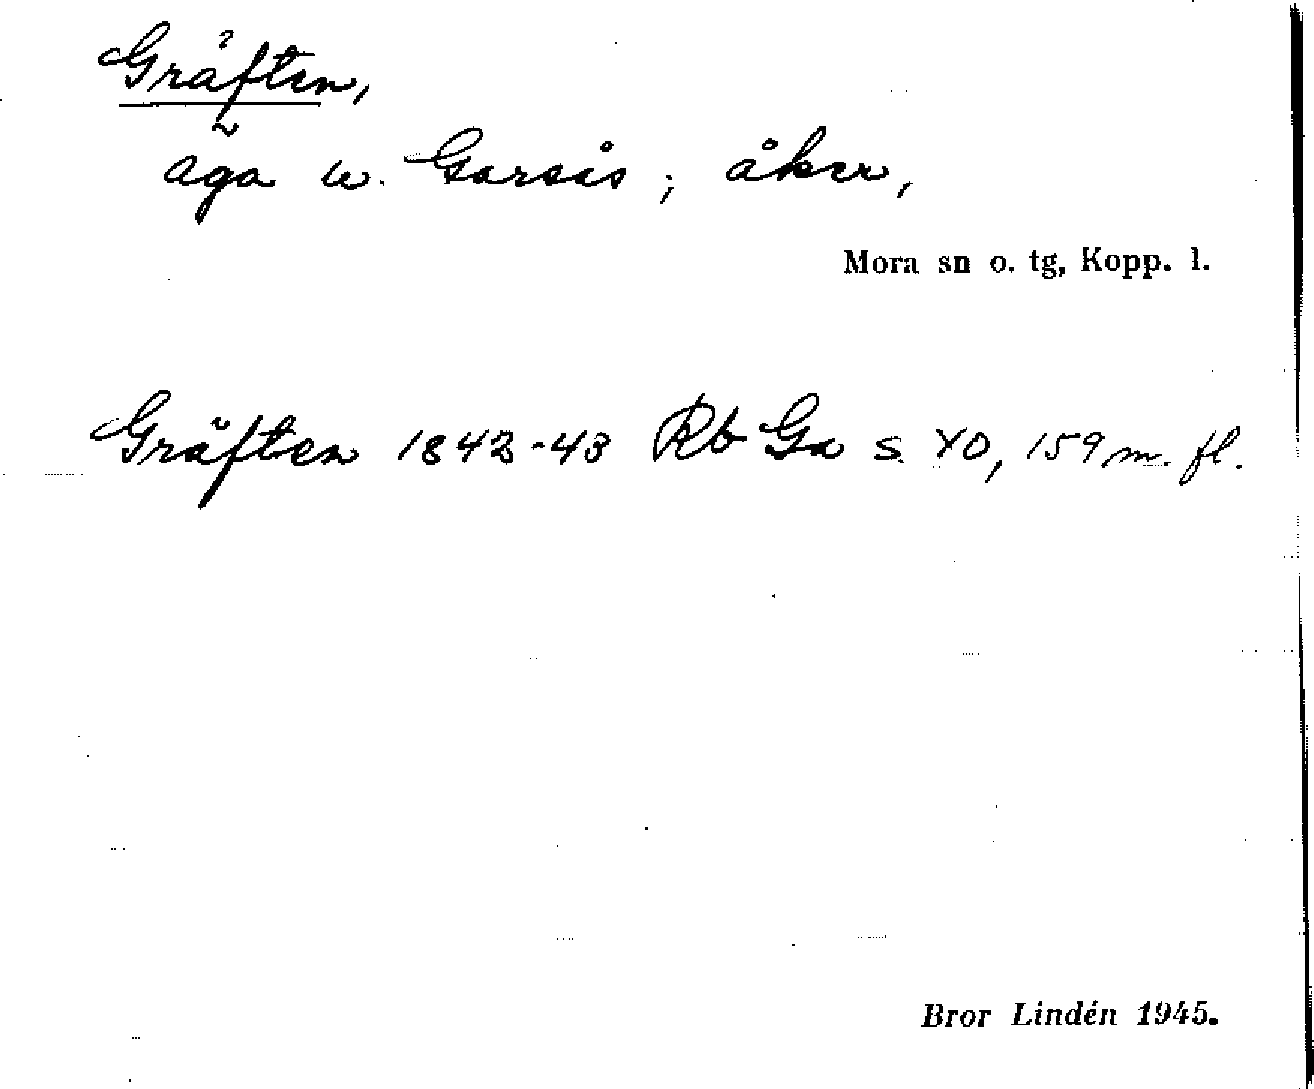 Gräften,
äga w. Garsås; åker,
Mora sn o. tg, Kopp. l.
Gräften 1842-43 Rb Ga s. XO, 159 m. fl.
Bror Lindén 1945.